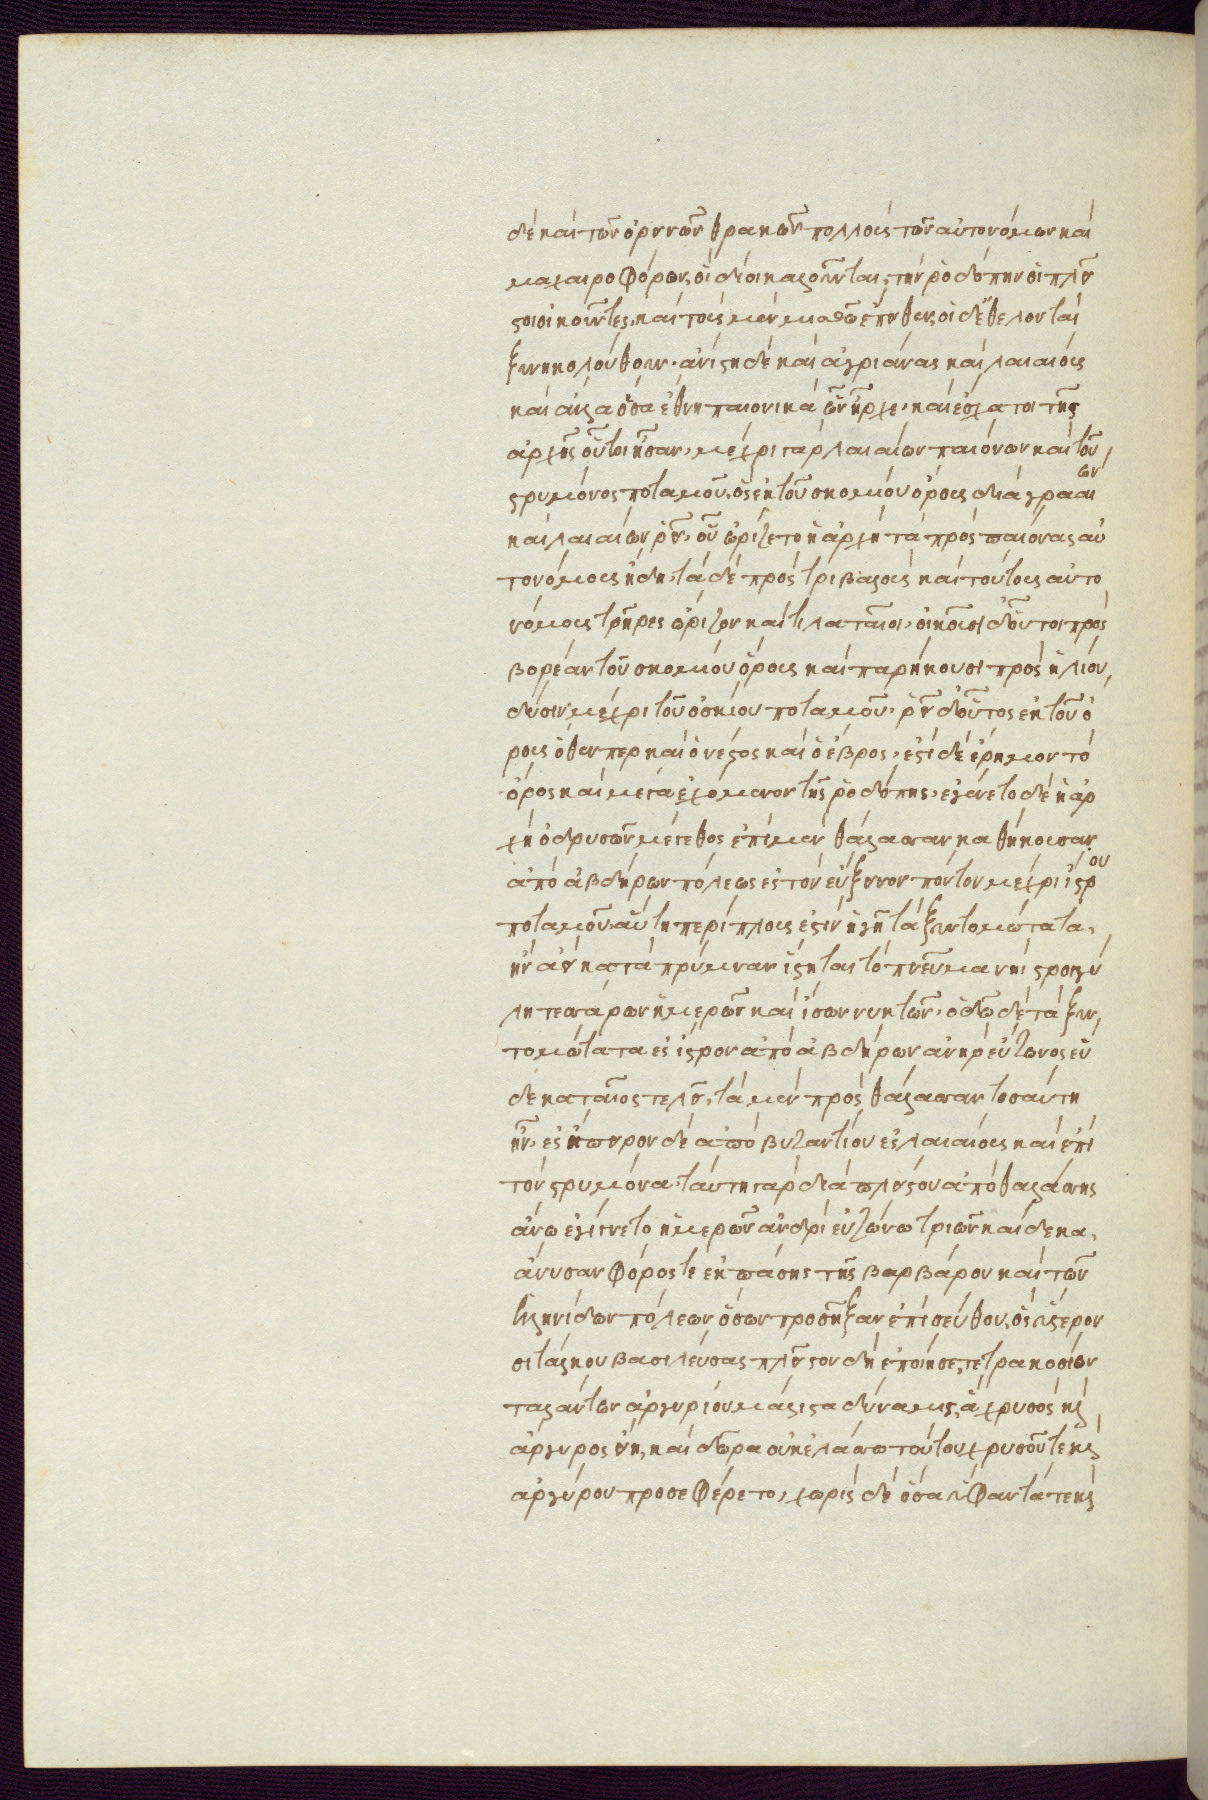 δὲ καὶ τῶν ὀρεινῶν θρακῶν πολλοὺς τῶν αὐτονόμων καὶ
μαχαιροφόρων, οἳ δίοι καλοῦνται, τὴν ῥοδόπην οἱ πλεῖ
στοι οἰκοῦντες, καὶ τοὺς μὲν μισθῶ ἔπειθεν, οἱ δ' ἐθελονταὶ
ξυνηκολούθουν. ἀνίστη δὲ καὶ ἀγριᾶνας καὶ λαιαίους
καὶ ἄλλα ὅσα ἔθνη παιονικὰ ὧν ἦρχε, καὶ ἔσχατοι τῆς
ἀρχῆς οὗτοι ἦσαν, μέχρι γὰρ λαιαίων παιόνων καὶ τοῦ
στρυμόνος ποταμοῦ, ὃς ἐκ τοῦ σκομίου ὄρους διὰ γρααίων
καὶ λαιαίων ῥεῖ, οὗ ὡρίζετο ἡ ἀρχὴ τὰ πρὸς παίονας αὐ
τονόμους ἤδη, τὰ δὲ πρὸς τριβαλοὺς καὶ τούτους αὐτο
νόμους τρῆρες ὥριζον καὶ τιλαταῖοι, οἰκοῦσι δ' οὗτοι πρὸς
βορέαν τοῦ σκομίου ὄρους καὶ παρήκουσι πρὸς ἡλίου
δύσιν μέχρι τοῦ ὀσκίου ποταμοῦ, ῥεῖ δ' οὗτος ἐκ τοῦ ὄ
ρους ὅθεν περ καὶ ὁ νέστος καὶ ὁ ἕβρος, ἔστι δὲ ἔρημον τὸ
ὄρος καὶ μέγα ἐχόμενον τῆς ῥοδόπης, ἐγένετο δὲ ἡ ἀρ
χὴ ὀδρυσῶν μέγεθος ἐπὶ μὲν θάλασσαν καθήκουσαν
ἀπὸ ἀβδήρων πόλεως ἐς τὸν εὔξεινον πόντον μέχρι ἴστρου
ποταμοῦ, αὕτη περίπλους ἐστὶν ἡ γῆ τὰ ξυντομώτατα,
ἢν ἀεὶ κατὰ πρύμναν ἵστηται τὸ πνεῦμα νηῒ στρογγύ
λη τεσσάρων ἡμερῶν καὶ ἴσων νυκτῶν, ὁδῶ δὲ τὰ ξυν
τομώτατα ἐς ἴστρον ἀπὸ ἀβδήρων ἀνὴρ εὔζωνος ἑν
δεκαταῖος τελεῖ, τὰ μὲν πρὸς θάλασσαν τοσαύτη
ἦν, ἐς ἤπειρον δὲ ἀπὸ βυζαντίου ἐς λαιαίους καὶ ἐπὶ
τὸν στρυμόνα, ταύτη γὰρ διὰ πλείστου ἀπὸ θαλάσσης
ἄνω ἐγίγνετο ἡμερῶν ἀνδρὶ εὐζώνω τριῶν καὶ δέκα,
ἀνύσαι φόρος τε ἐκ πάσης τῆς βαρβάρου καὶ τῶν
ἑλληνίδων πόλεων ὅσων προσῆξαν ἐπὶ σεύθου, ὃς ὕστερον
σιτάλκου βασιλεύσας πλεῖστον δὴ ἐποίησε, τετρακοσίων
ταλάντων ἀργυρίου μάλιστα δύναμις, ἃ χρυσὸς καὶ
ἄργυρος εἴη, καὶ δῶρα οὐκ ἐλάσσω τούτου χρυσοῦ τε καὶ
ἀργύρου προσεφέρετο, χωρὶς δὲ ὅσα ὑφαντά τε καὶ